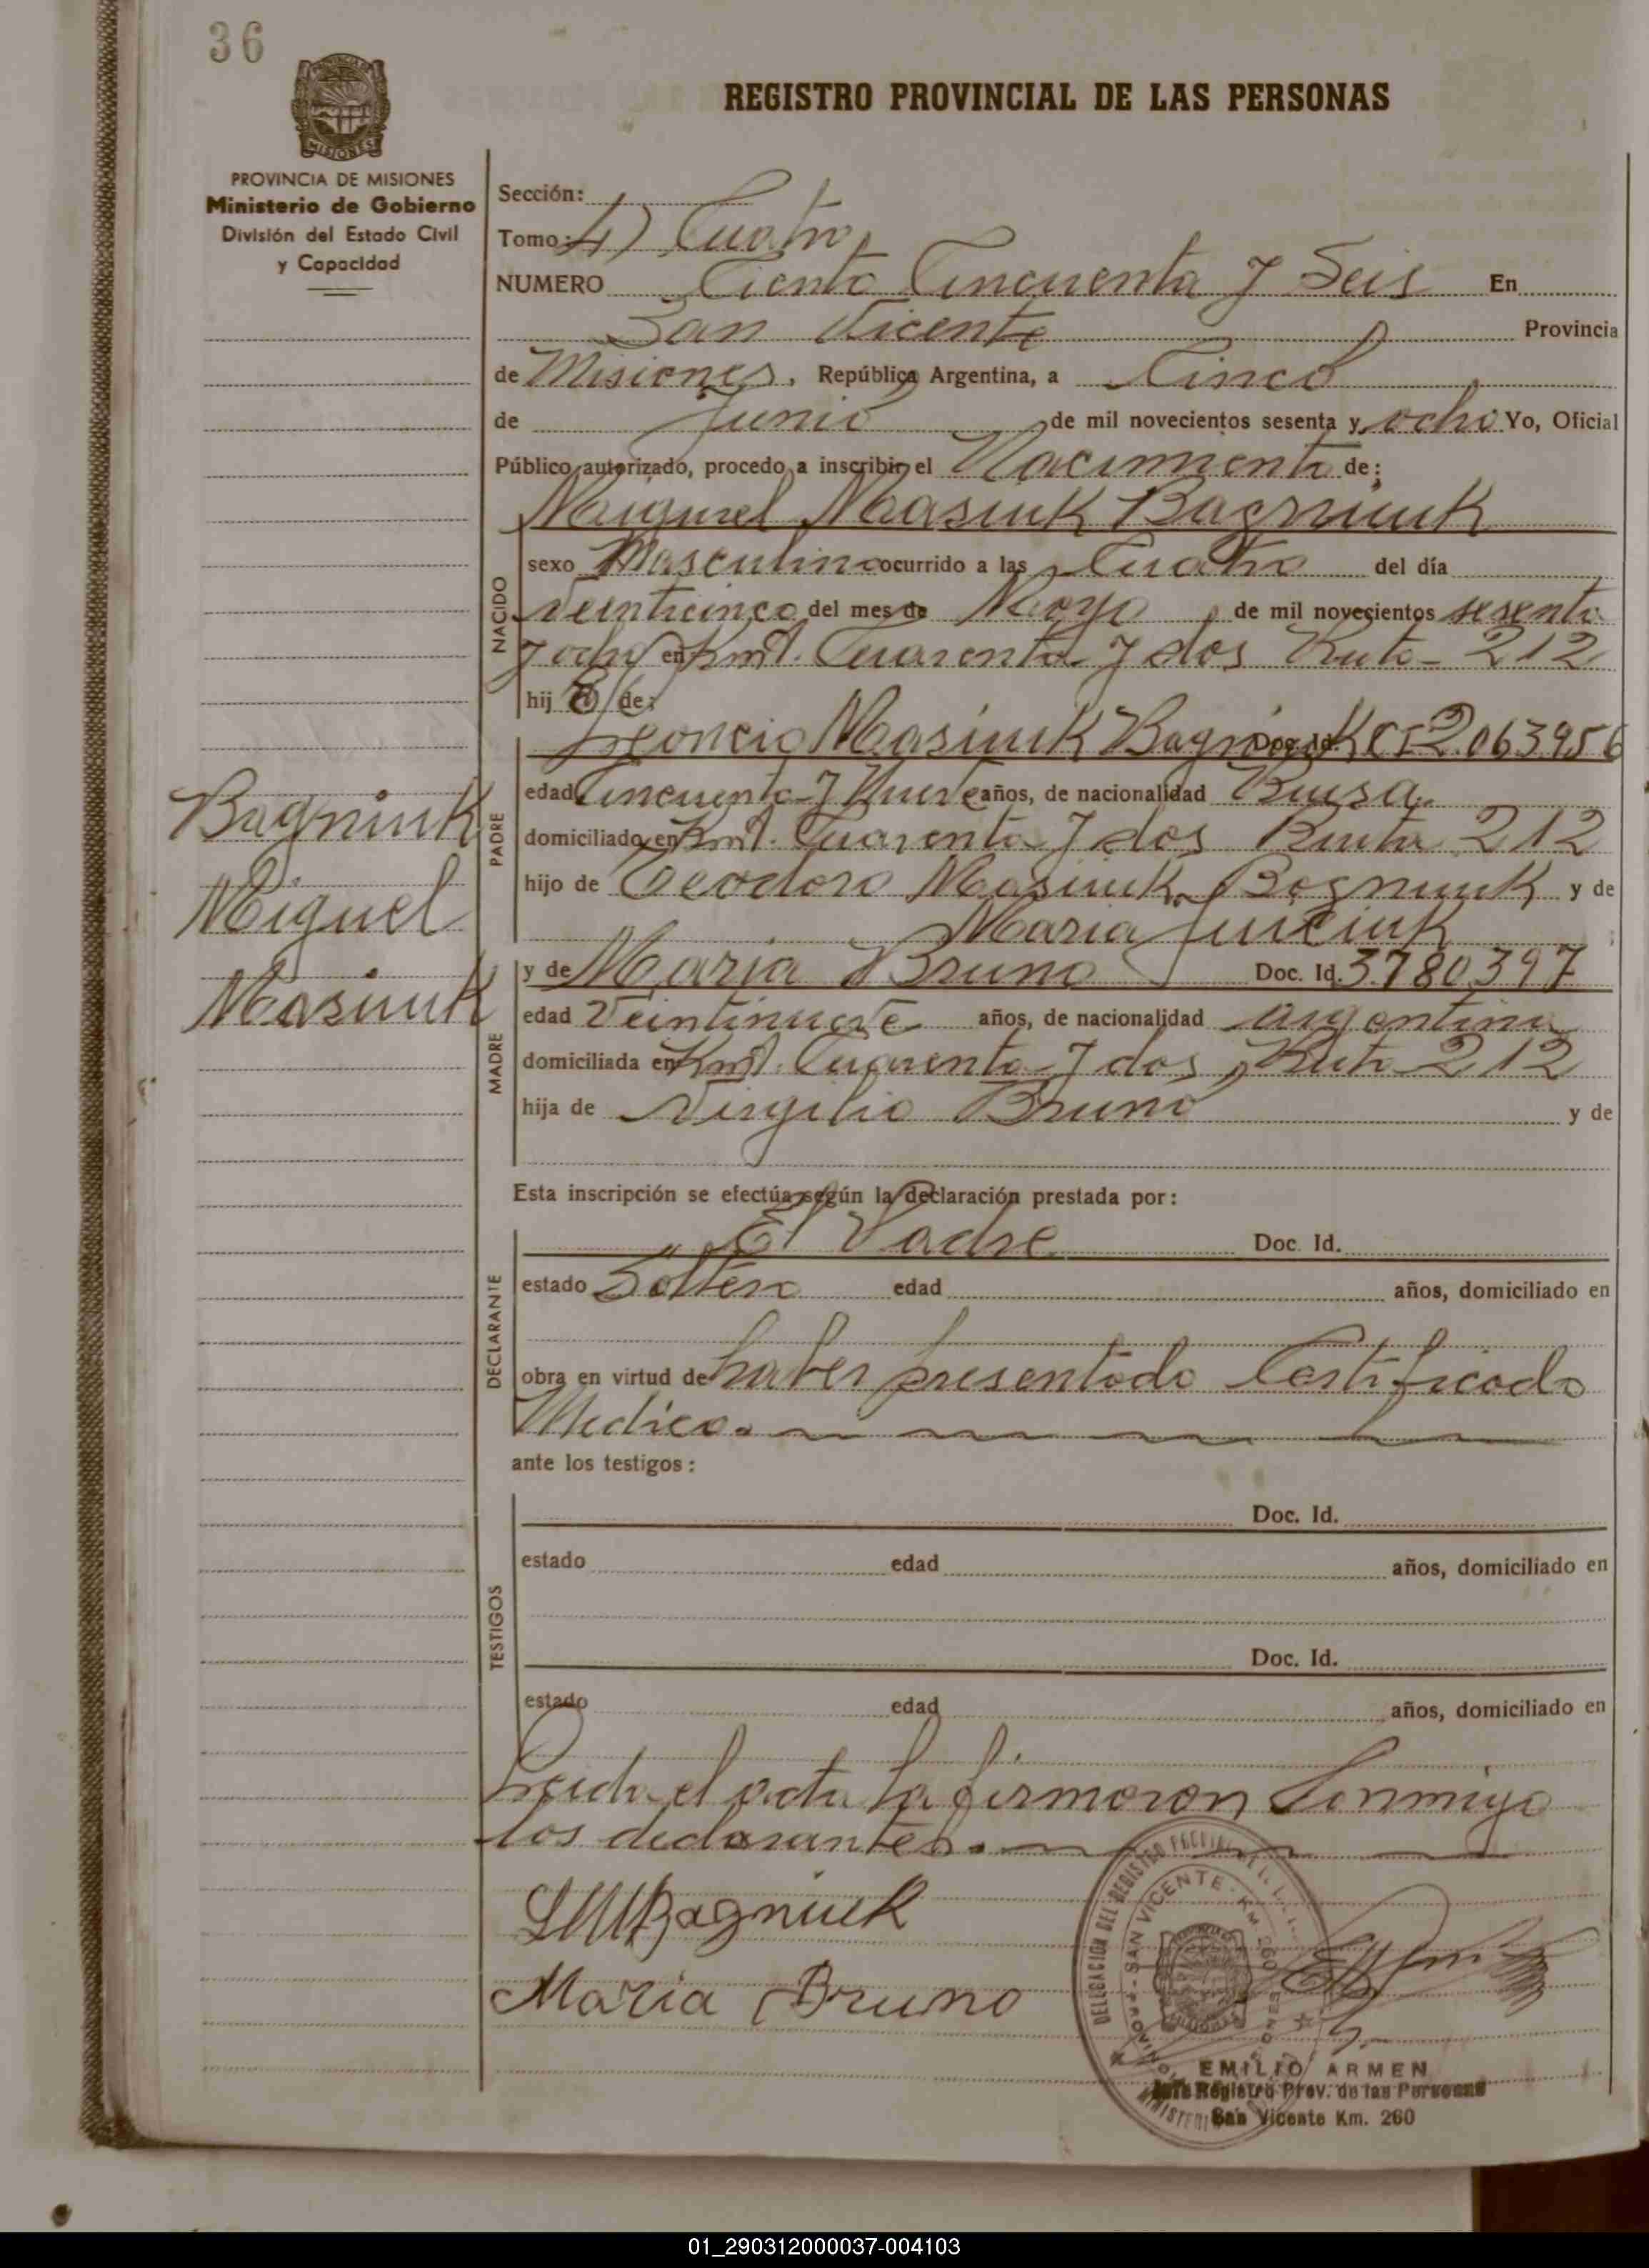 36
REGISTRO PROVINCIAL DE LAS PERSONAS
PROVINCIA DE MISIONES
Ministerio de Gobierno
División del Estado Civil
y Capacidad
Sección:
Tomo: 4) Cuatro
NUMERO Ciento Cincuenta y Seis En
San Vicente Provincia
de Misiones, República Argentina, a Cinco
de Junio de mil novecientos sesenta y ocho Yo, Oficial
Público autorizado, procedo a inscribir el Nacimiento de:
Miguel Masiuk Bagniuk
NACIDO
sexo Masculino ocurrido a las Cuatro del día
Veinticinco del mes de Mayo de mil novecientos sesenta
y ocho en Kmt. Cuarenta y dos Ruta 212
hij o de:
Leoncio Masiuk Bagniuk Doc. Id. CI 2.063956
PADRE
edad Cincuenta y Nueve años, de nacionalidad Rusa
domiciliado en Kmt. Cuarenta y dos Ruta 212
hijo de Teodoro Masiuk Bagniuk y de
Maria
Bagniuk
Miguel
Masiuk
MADRE
y de Maria Bruno Doc. Id. 3780397
edad Veintinueve años, de nacionalidad argentina
domiciliada en Kmt. Cuarenta y dos Ruta 212
hija de Virgilio Bruno y de
Esta inscripción se efectúa según la declaración prestada por:
DECLARANTE
El Padre Doc. Id.
estado Soltero edad años, domiciliado en
obra en virtud de haber presentado Certificado
Medico.
ante los testigos:
TESTIGOS
Doc. Id.
estado edad años, domiciliado en
Doc. Id.
estado edad años, domiciliado en
Leida el acta la firmaron Conmigo
los declarantes.
LMBagniuk
Maria Bruno
DELEGACION DEL REGISTRO PROVINCIAL
SAN VICENTE - KM 260
EMILIO ARMEN
Jefe Registro Prov. de las Personas
San Vicente Km. 260
01_290312000037-004103